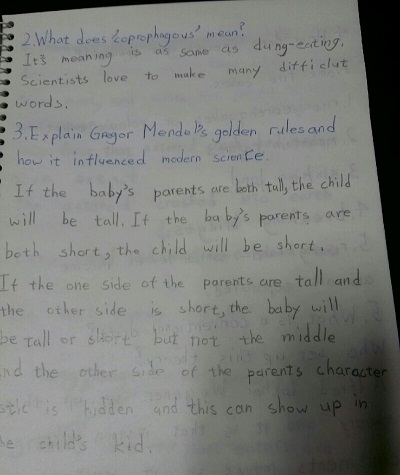 2.What does 'coprophagous' mean?
It's meaning is as same as dung-eating.
Scientists love to make many difficlut
words.
3.Explain Gregor Mendel's golden rules and
how it influenced modern science.
If the baby's parents are both tall, the child
will be tall. If the baby's parents are
both short, the child will be short.
If the one side of the parents are tall and
the other side is short, the baby will
be tall or short but not the middle
nd the other side of the parents character
stic is hidden and this can show up in
e child's kid.